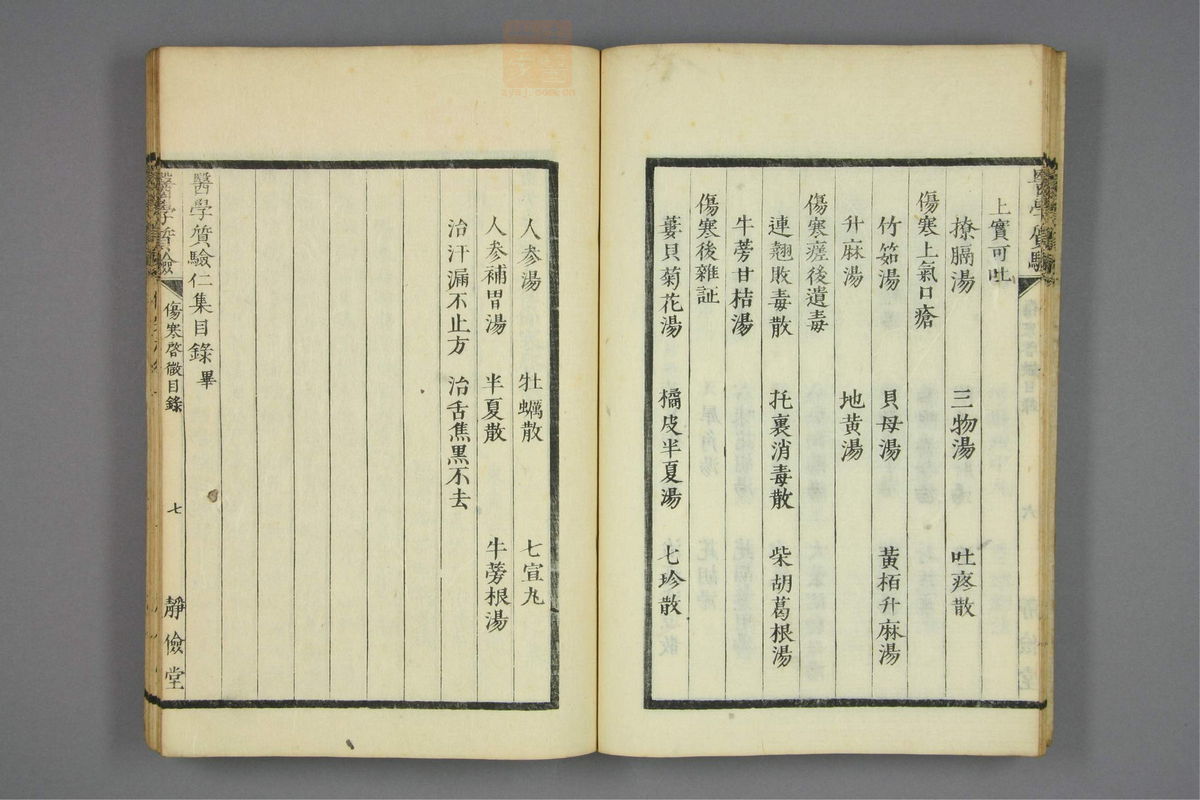 上實可吐
撩膈湯 三物湯 吐痰散
傷寒上氣口瘡
竹茹湯 貝母湯 黃栢升麻湯
升麻湯 地黃湯
傷寒瘥後遺毒
連翹敗毒散 托裏消毒散 柴胡葛根湯
牛蒡甘桔湯
傷寒後雜証
蔞貝菊花湯 橘皮半夏湯 七珍散
人参湯 牡蠣散 七宣丸
人参補胃湯 半夏散 牛蒡根湯
治汗漏不止方 治舌焦黒不去
醫學質驗仁集目錄畢
醫學質驗 傷寒啓微目錄 七 靜儉堂